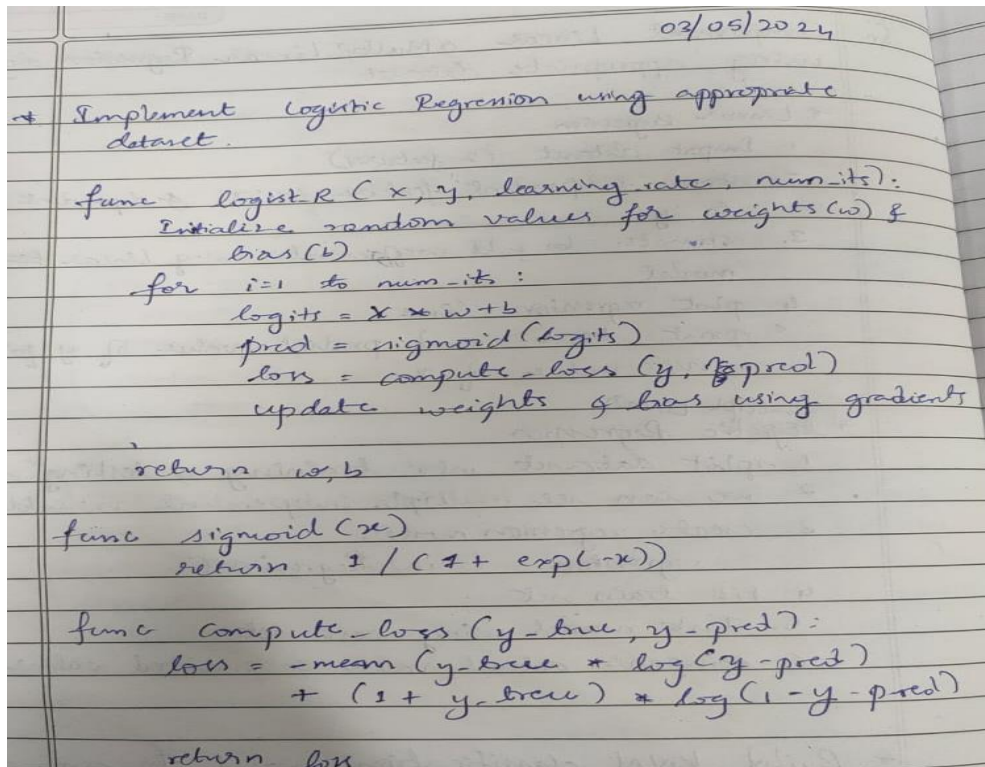 03/05/2024
* Implement Logistic Regression using appropriate
dataset.
func logist_R (x, y, learning_rate, num_its):
Initialize random values for weights (w) &
bias (b)
for i=1 to num_its :
logits = x * w + b
pred = sigmoid (logits)
loss = compute_loss (y, pred)
update weights & bias using gradients
return w, b
func sigmoid (x)
return 1 / (1 + exp(-x))
func compute_loss (y_true, y_pred):
loss = -mean (y_true * log(y_pred)
+ (1 + y_true) * log(1 - y_pred)
return loss